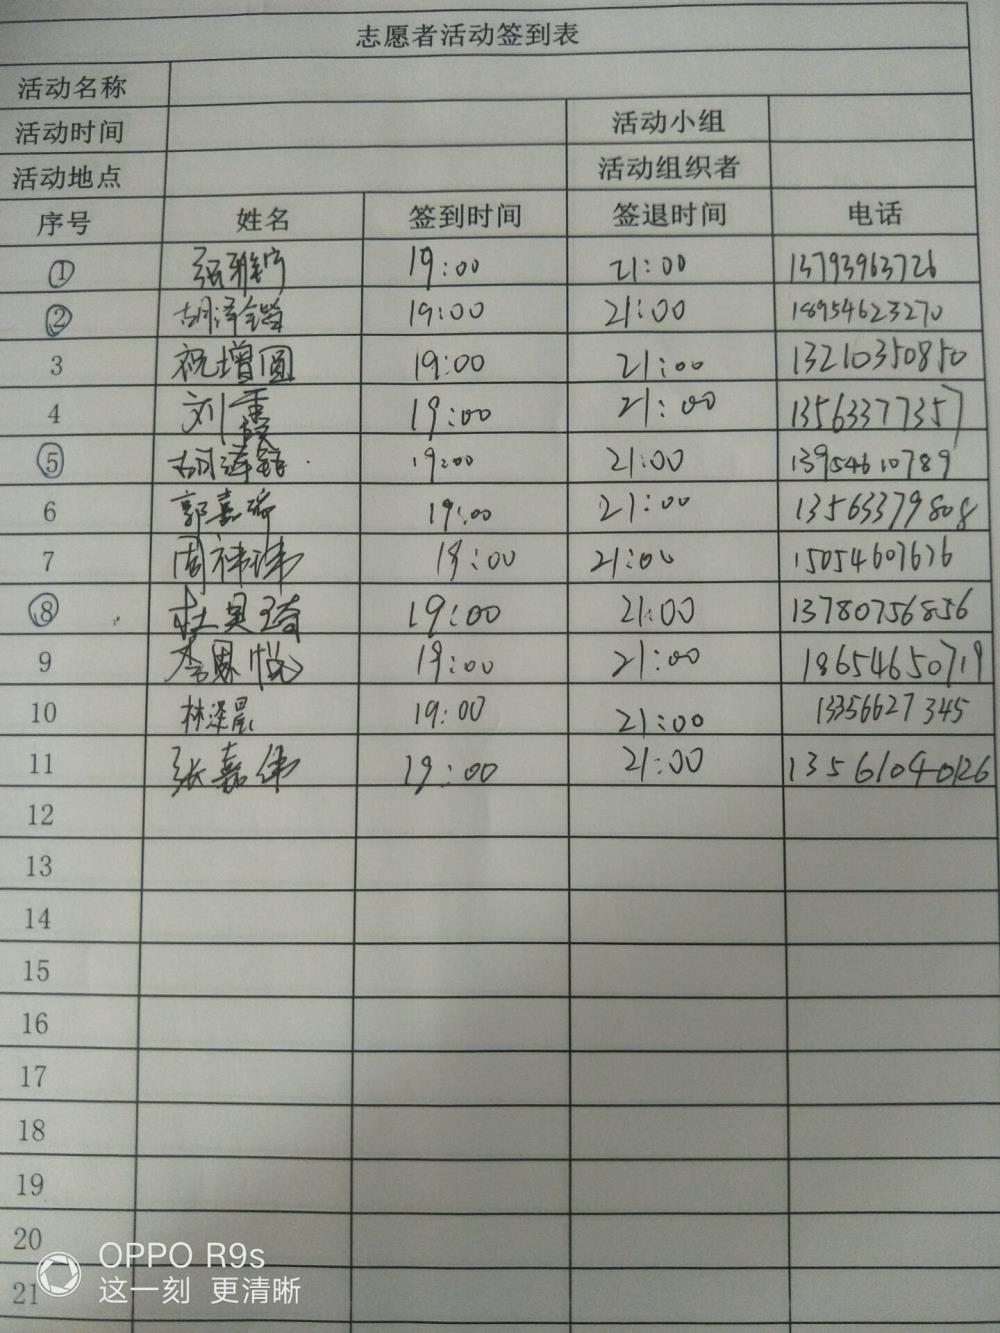 志愿者活动签到表
活动名称
活动时间 活动小组
活动地点 活动组织者
序号 姓名 签到时间 签退时间 电话
① 19:00 21:00 13793963726
② 胡泽 19:00 21:00 18954623270
3 祝增圆 19:00 21:00 13210350850
4 刘霞 19:00 21:00 13563377357
⑤ 胡泽 19:00 21:00 13954610789
6 郭嘉 19:00 21:00 13563379808
7 周祎玮 19:00 21:00 15054607676
⑧ 杜昊琦 19:00 21:00 13780756856
9 李恩悦 19:00 21:00 18654650719
10 林泽晨 19:00 21:00 13356627345
11 张嘉伟 19:00 21:00 13561040126
12
13
14
15
16
17
18
19
20
21
OPPO R9s
这一刻 更清晰